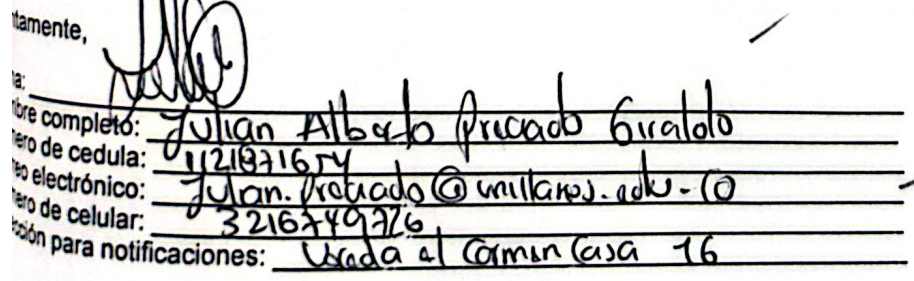 ntamente,
a:
bre completo: Julian Alberto Preciado Giraldo
ero de cedula: 1121871654
eo electrónico: Julian.Preciado@unillanos.edu.co
ero de celular: 3216749726
ción para notificaciones: Vereda el Carmen Casa 16